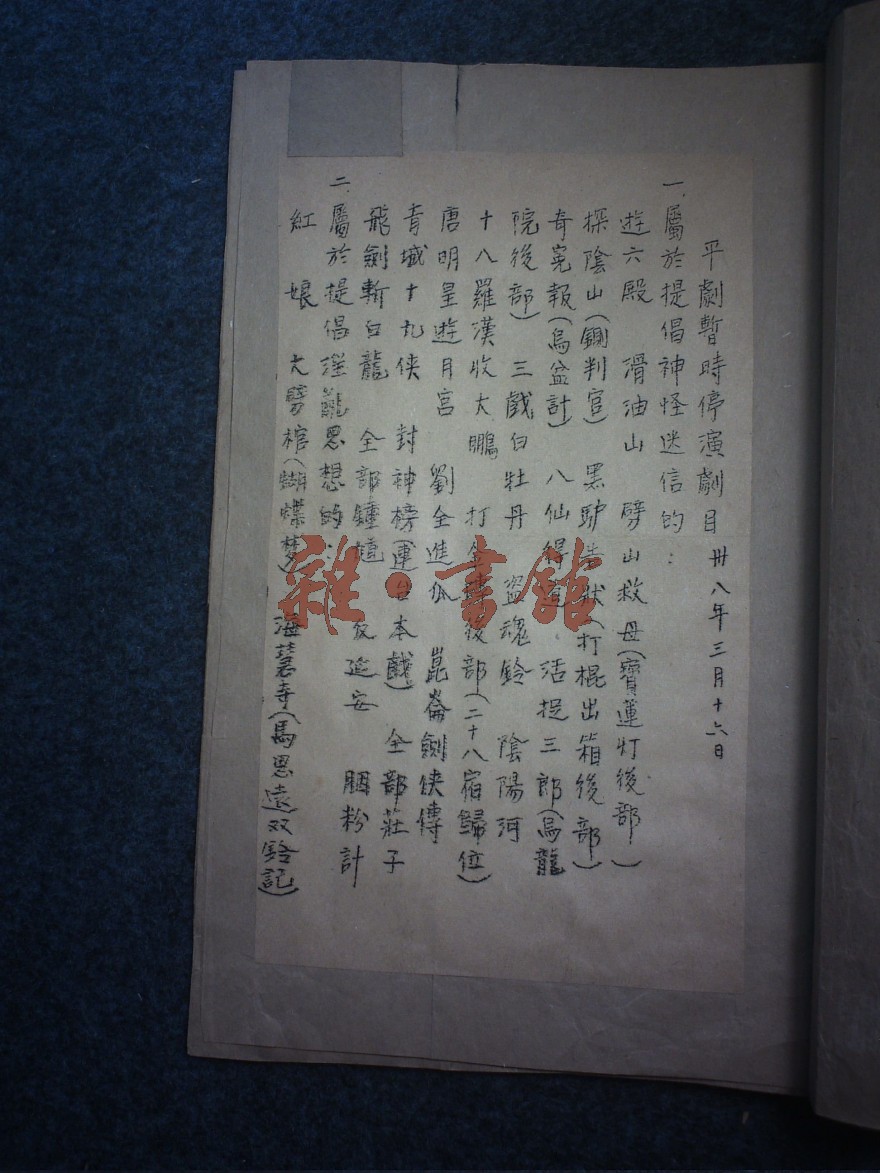 平劇暫時停演劇目 卅八年三月十六日
一、屬於提倡神怪迷信的：
遊六殿 滑油山 劈山救母（寶蓮灯後部）
探陰山（鍘判官） 黑驴告狀（打棍出箱後部）
奇冤報（烏盆計） 八仙得道 活捉三郎（烏龍
院後部） 三戲白牡丹 盜魂鈴 陰陽河
十八羅漢收大鵬 打金磚後部（二十八宿歸位）
唐明皇遊月宮 劉全進瓜 崑崙劍俠傳
青城十九俠 封神榜（連台本戲） 全部莊子
飛劍斬白龍 全部鍾馗
二、屬於提倡淫亂思想的： 反延安 胭粉計
紅娘 大劈棺（蝴蝶梦） 海慧寺（馬思遠双鈴記）
雜·書館